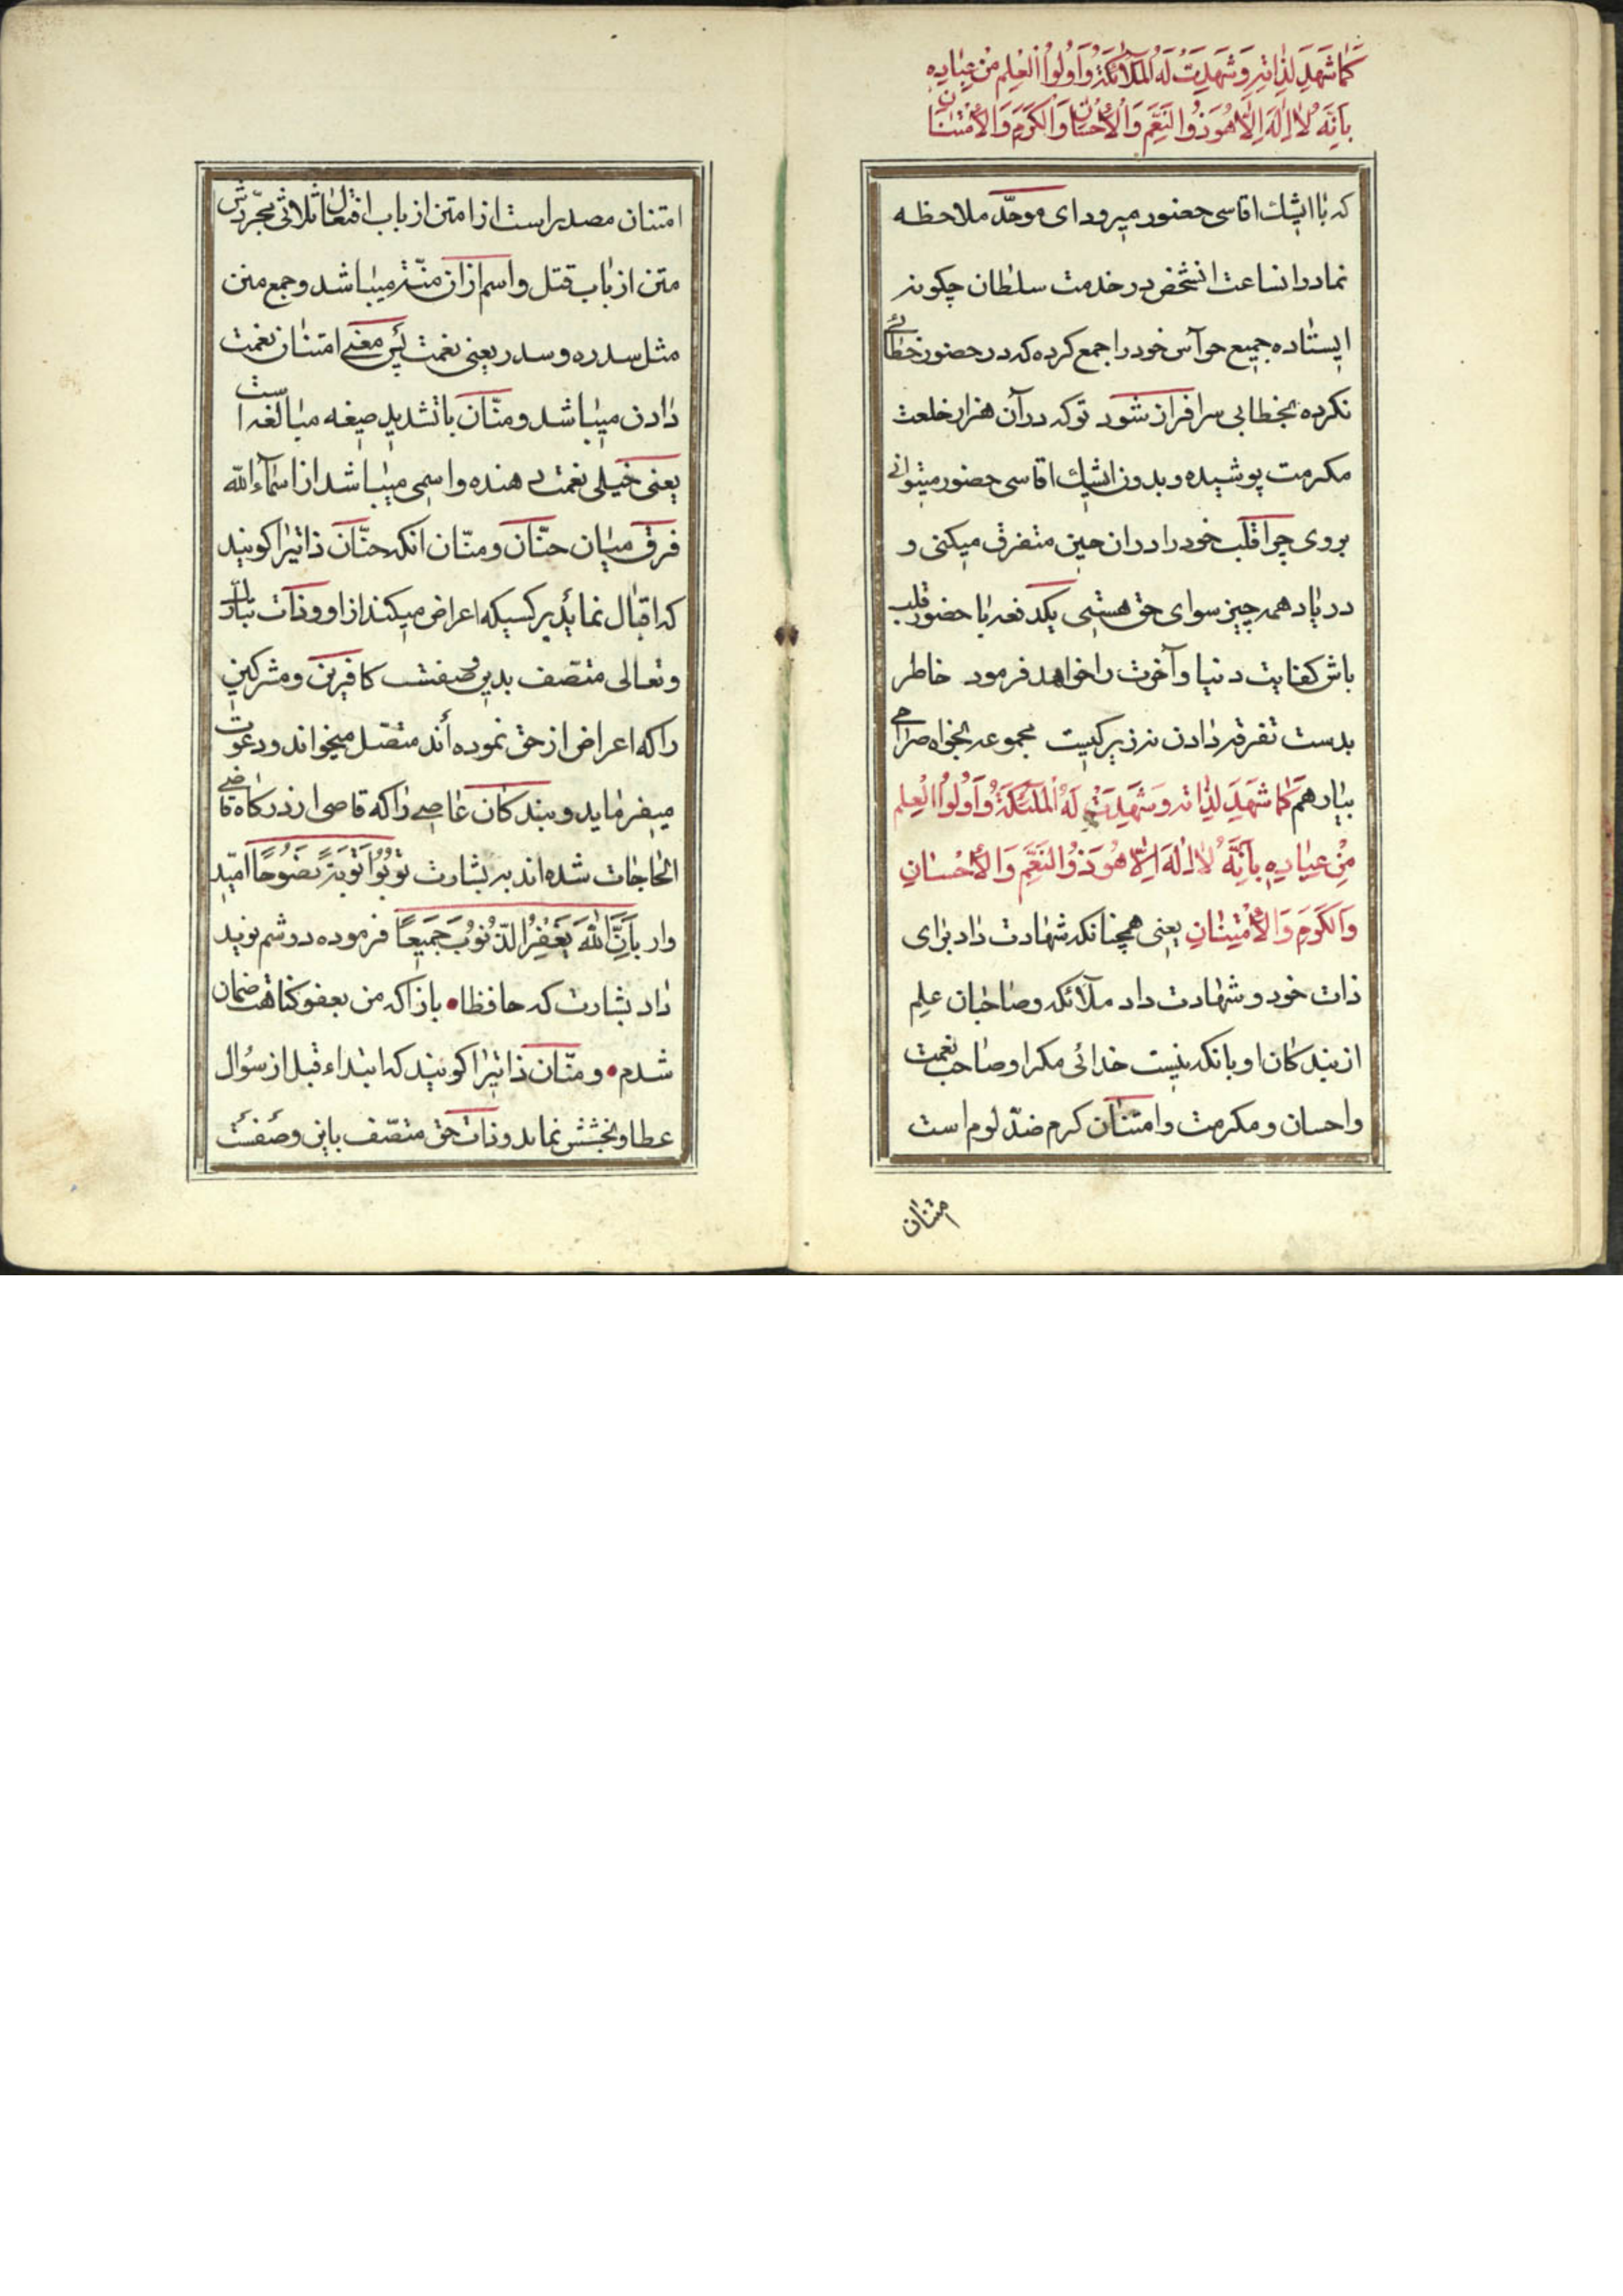 كَمٰا شَهِدَ لِذٰاتِهِ وَ شَهِدَتْ لَهُ الْمَلآئِكَةُ وَ اُولُوا الْعِلْمِ مِنْ عِبٰادِهِ
بِاَنَّهُ لاٰ اِلٰهَ اِلاّٰ هُوَ ذُو النِّعَمِ وَ الْاِحْسٰانِ وَ الْكَرَمِ وَ الْاِمْتِنٰانِ
که با ایشك اقاسی حضور میرود ای موحّد ملاحظه
نما در انساعت انشخص در خدمت سلطان چکونه
ایستاده جمیع حوآس خود را جمع کرده که در حضور خطائے
نکرده بخطابی سرافراز شود توکه در آن هزار خلعت
مکرمت پوشیده و بدون ایشیك اقاسی حضور میتوانی
بروی چرا قلب خود را در ان حین متفرق میکنی و
در یاد همه چیز سوای حق هستی یکدفعه با حضور قلب
باش کفایت دنیا و آخرت را خواهد فرمود خاطر
بدست تفرقه دادن نه زیرکیست مجموعه بخواه صراحی
بیار هم كَمٰا شَهِدَ لِذٰاتِهِ وَ شَهِدَتْ لَهُ الْمَلٰئِكَةُ وَ اُولُوا الْعِلْمِ
مِنْ عِبٰادِهِ بِاَنَّهُ لاٰ اِلٰهَ اِلاّٰ هُوَ ذُو النِّعَمِ وَ الْاِحْسٰانِ
وَ الْكَرَمِ وَ الْاِمْتِنٰانِ یعنی همچنانکه شهادت داد برای
ذات خود و شهادت داد ملآئکه و صاحبان علم
از بندکان او بانکه نیست خدائی مکر او صاحب نعمت
و احسان و مکرمت و امتنان کرم ضدّ لوم است
امتنان
امتنان مصدر است از امتن از باب افتعال ثلاثی مجرّدش
متن از باب قتل و اسم از ان منّة میباشد و جمع منن
مثل سدره و سدر یعنی نعمت پس معنے امتنان نعمت
دادن میباشد و منّان باتشدید صیغه مبالغه است
یعنی خیلی نعمت دهنده و اسمی میباشد از اسمآء الله
فرق میان حنّان و منّان انکه حنّان ذاتیرا کویند
که اقبال نماید بر کسیکه اعراض میکند از او و ذات تبارك
و تعالی متصف بدین صفتست کافرین و مشرکین
را که اعراض از حق نموده اند متصل میخواند و دعوت
میفرماید و بندکان عاصے را که قاصی از درکاه قاضے
الحاجات شده اند به بشارت تُوبُوا تَوْبَةً نَصُوحًا امّید
وار بِاَنَّ اللهَ یَغْفِرُ الذُّنُوبَ جَمِیعًا فرموده دوشم نوید
داد بشارت که حافظا • باز اکه من بعفو کناهت ضمان
شدم • و منّان ذاتیرا کویند که ابتداء قبل از سؤال
عطا و بخشش نماید و ذات حق متصّف باین وصفست